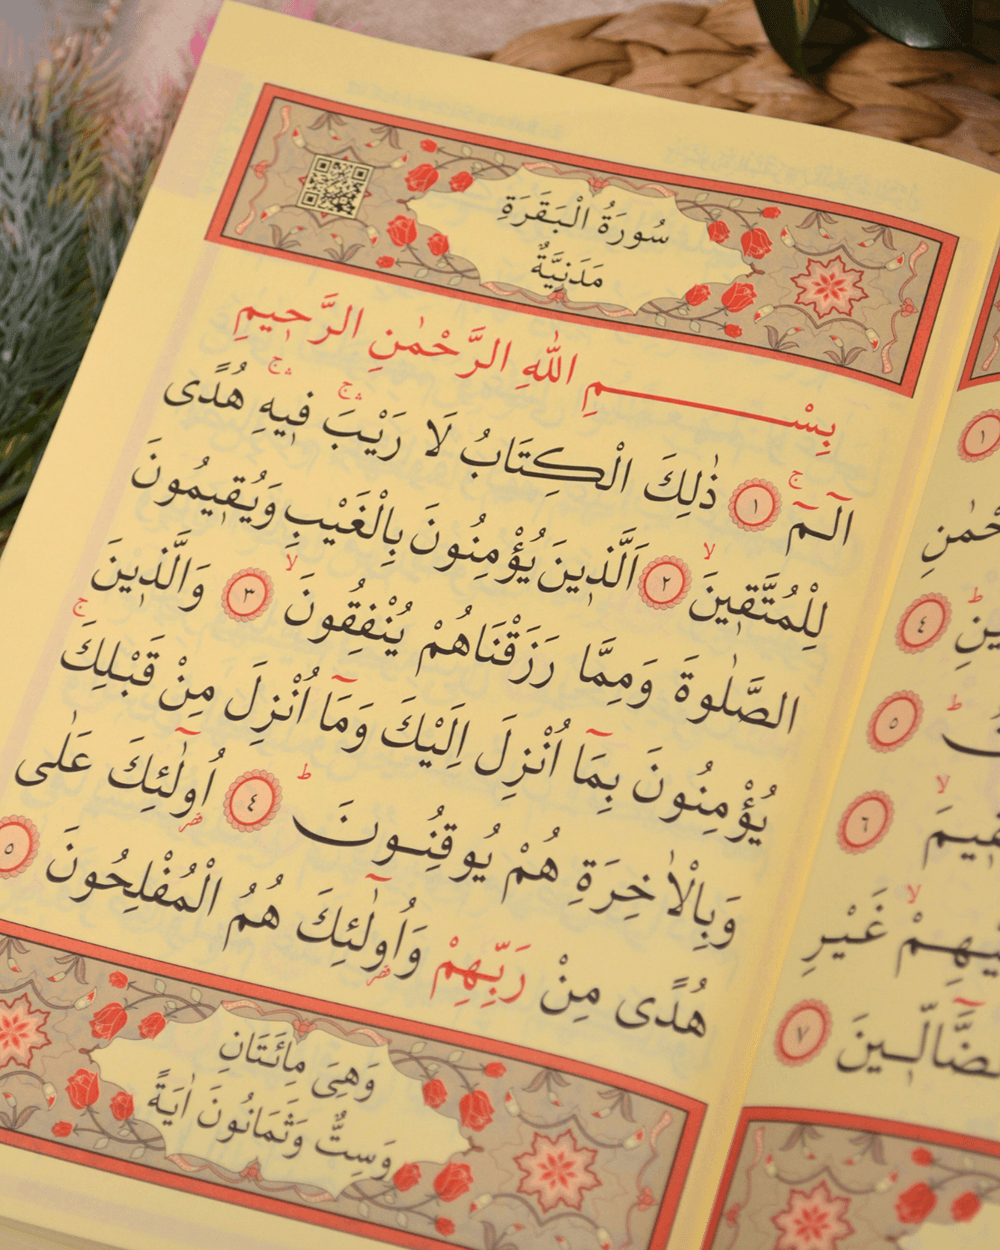 سُورَةُ الْبَقَرَةِ
مَدَنِيَّةٌ
بِسْمِ اللّٰهِ الرَّحْمٰنِ الرَّحٖيمِ
الٓمٓ ۚ ﴿١﴾ ذٰلِكَ الْكِتَابُ لَا رَيْبَ ۛۚ فٖيهِ ۛۚ هُدًى
لِلْمُتَّقٖينَ ۙ ﴿٢﴾ اَلَّذٖينَ يُؤْمِنُونَ بِالْغَيْبِ وَيُقٖيمُونَ
الصَّلٰوةَ وَمِمَّا رَزَقْنَاهُمْ يُنْفِقُونَ ۙ ﴿٣﴾ وَالَّذٖينَ
يُؤْمِنُونَ بِمَٓا اُنْزِلَ اِلَيْكَ وَمَٓا اُنْزِلَ مِنْ قَبْلِكَ ۚ
وَبِالْاٰخِرَةِ هُمْ يُوقِنُونَ ؕ ﴿٤﴾ اُو۬لٰٓئِكَ عَلٰى
هُدًى مِنْ رَبِّهِمْ وَاُو۬لٰٓئِكَ هُمُ الْمُفْلِحُونَ ﴿٥﴾
وَهِىَ مِائَتَانِ
وَسِتٌّ وَثَمَانُونَ اٰيَةً
١
٤
٥
٦
غَيْرِ
٧